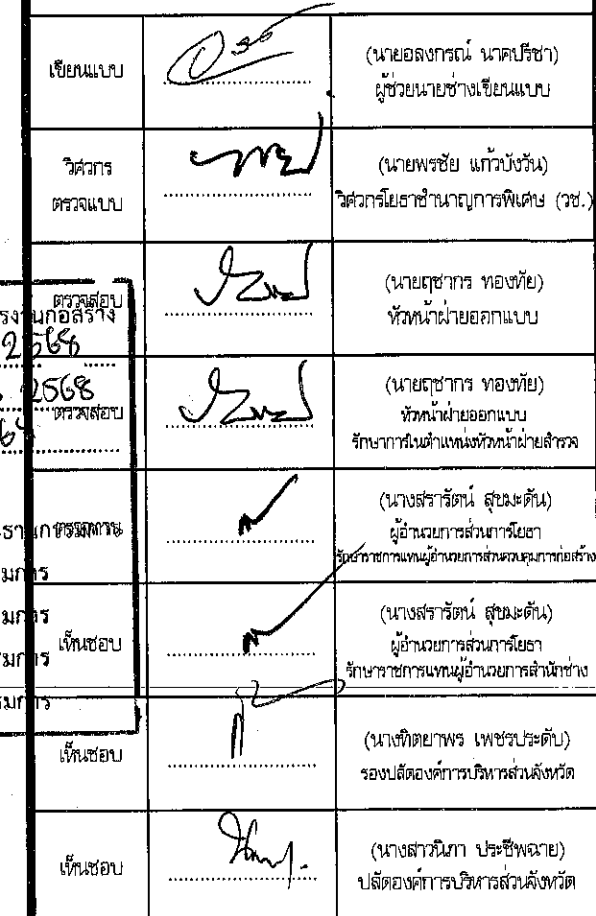 เขียนแบบ
(นายอลงกรณ์ นาคปรีชา)
ผู้ช่วยนายช่างเขียนแบบ
วิศวกร
ตรวจแบบ
(นายพรชัย แก้วบังวัน)
วิศวกรโยธาชำนาญการพิเศษ (วช.)
ตรวจสอบ
(นายฤชากร ทองทัย)
หัวหน้าฝ่ายออกแบบ
2568
2568
ตรวจสอบ
(นายฤชากร ทองทัย)
หัวหน้าฝ่ายออกแบบ
รักษาการในตำแหน่งหัวหน้าฝ่ายสำรวจ
(นางสรารัตน์ สุขมะดัน)
ผู้อำนวยการส่วนการโยธา
รักษาราชการแทนผู้อำนวยการส่วนควบคุมการก่อสร้าง
เห็นชอบ
(นางสรารัตน์ สุขมะดัน)
ผู้อำนวยการส่วนการโยธา
รักษาราชการแทนผู้อำนวยการสำนักช่าง
เห็นชอบ
(นางทิตยาพร เพชรประดับ)
รองปลัดองค์การบริหารส่วนจังหวัด
เห็นชอบ
(นางสาวนิภา ประชีพฉาย)
ปลัดองค์การบริหารส่วนจังหวัด